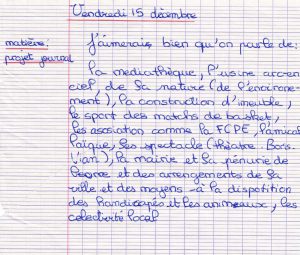 Vendredi 15 décembre
matière:
projet journal
J'aimerais bien qu'on parle de:
la mediathèque, l'usine arc en
ciel, de la nature (de l'environe-
ment), la construction d'imeuble,
le sport des matchs de basket,
les asosiation comme la FCPE, l'amical
laïque, les spectacle (théatre. Boris.
Vian), la mairie et la pénurie de
et des arrangements de la
ville et des moyens à la dispotition
des handicapés et les animeaux, les
colectivité local